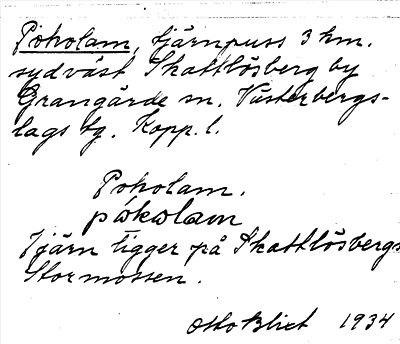 Poholam, tjärnpuss 3 km.
sydväst Skattlösberg by
Grangärde sn. Västerbergs-
lags tg. Kopp. l.
Poholam.
pòkolam
Tjärn ligger på Skattlösbergs
Stormossen.
Otto Blixt 1934